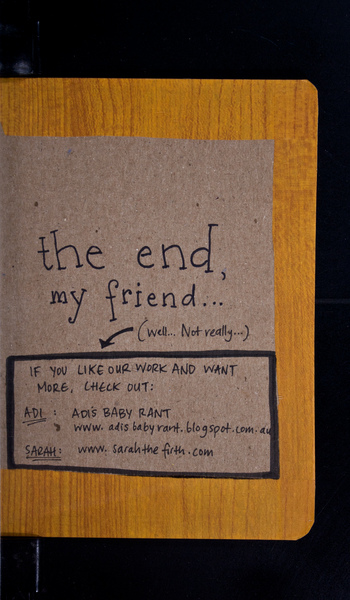 the end,
my friend...
(well... Not really...)
IF YOU LIKE OUR WORK AND WANT
MORE, CHECK OUT:
ADI : ADI'S BABY RANT
www.adisbabyrant.blogspot.com.au
SARAH: www.sarahthefirth.com